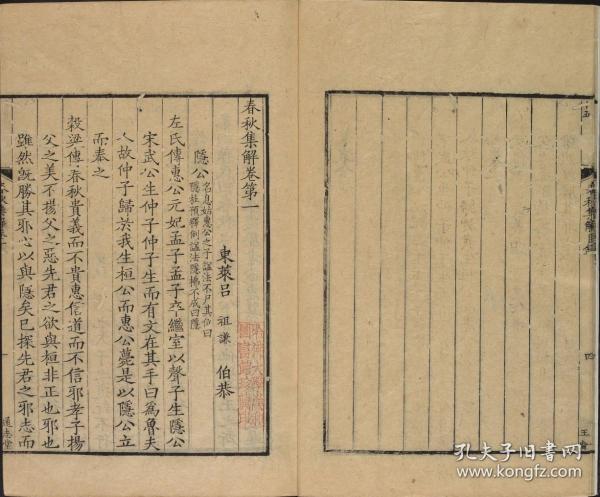 春秋集解卷第一
東萊呂 祖謙 伯恭
隱公名息姑惠公之子謚法不尸其位曰
隱杜預釋例謚法隱拂不成曰隱
左氏傳惠公元妃孟子孟子卒繼室以聲子生隱公
宋武公生仲子仲子生而有文在其手曰爲魯夫
人故仲子歸於我生桓公而惠公薨是以隱公立
而奉之
穀梁傳春秋貴義而不貴惠信道而不信邪孝子揚
父之美不揚父之惡先君之欲與桓非正也邪也
雖然既勝其邪心以與隱矣已探先君之邪志而
通志堂
四
孔夫子旧书网
www.kongfz.com